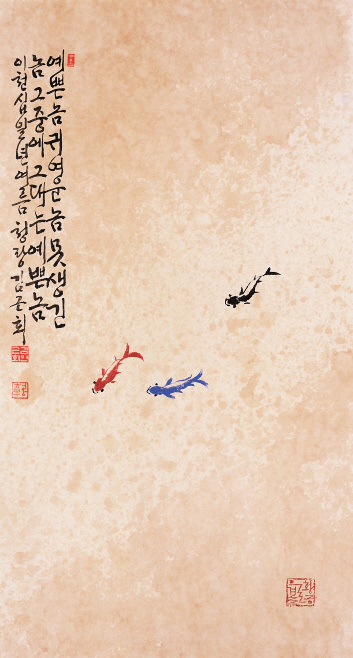 예쁜놈 귀여운놈 못생긴
놈 그중에 그대는 예쁜놈
이천십일년여름 청랑 김군회